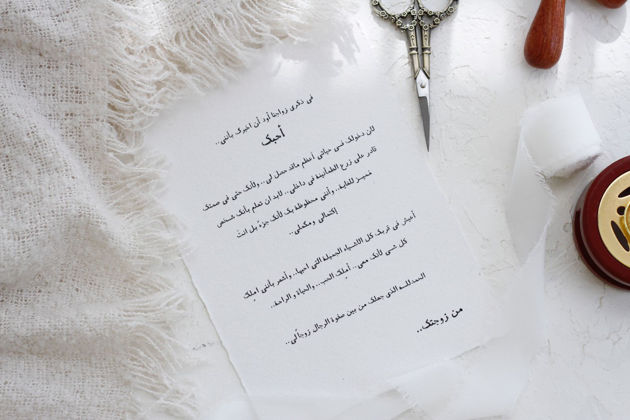 في ذكرى زواجنا أود أن اخبرك بأنني..
أحبك
لأن دخولك في حياتي أعظم ماقد حصل لي.. ولأنك حتى في صمتك
قادر على زرع الطمأنينة في داخلي.. لابد ان تعلم بأنك شخص
مميز للغاية.. وأنني محظوظة بك لأنك جزء بل انت
إكتمالي ومكملي..
أعيش في قربك كل الأشياء الجميلة التي احبها.. وأشعر بأنني املك
كل شيء لأنك معي.. أملك الحب.. والحياة و الراحة..
الحمدلله الذي جعلك من بين صفوة الرجال زوجاً لي..
من زوجتك..